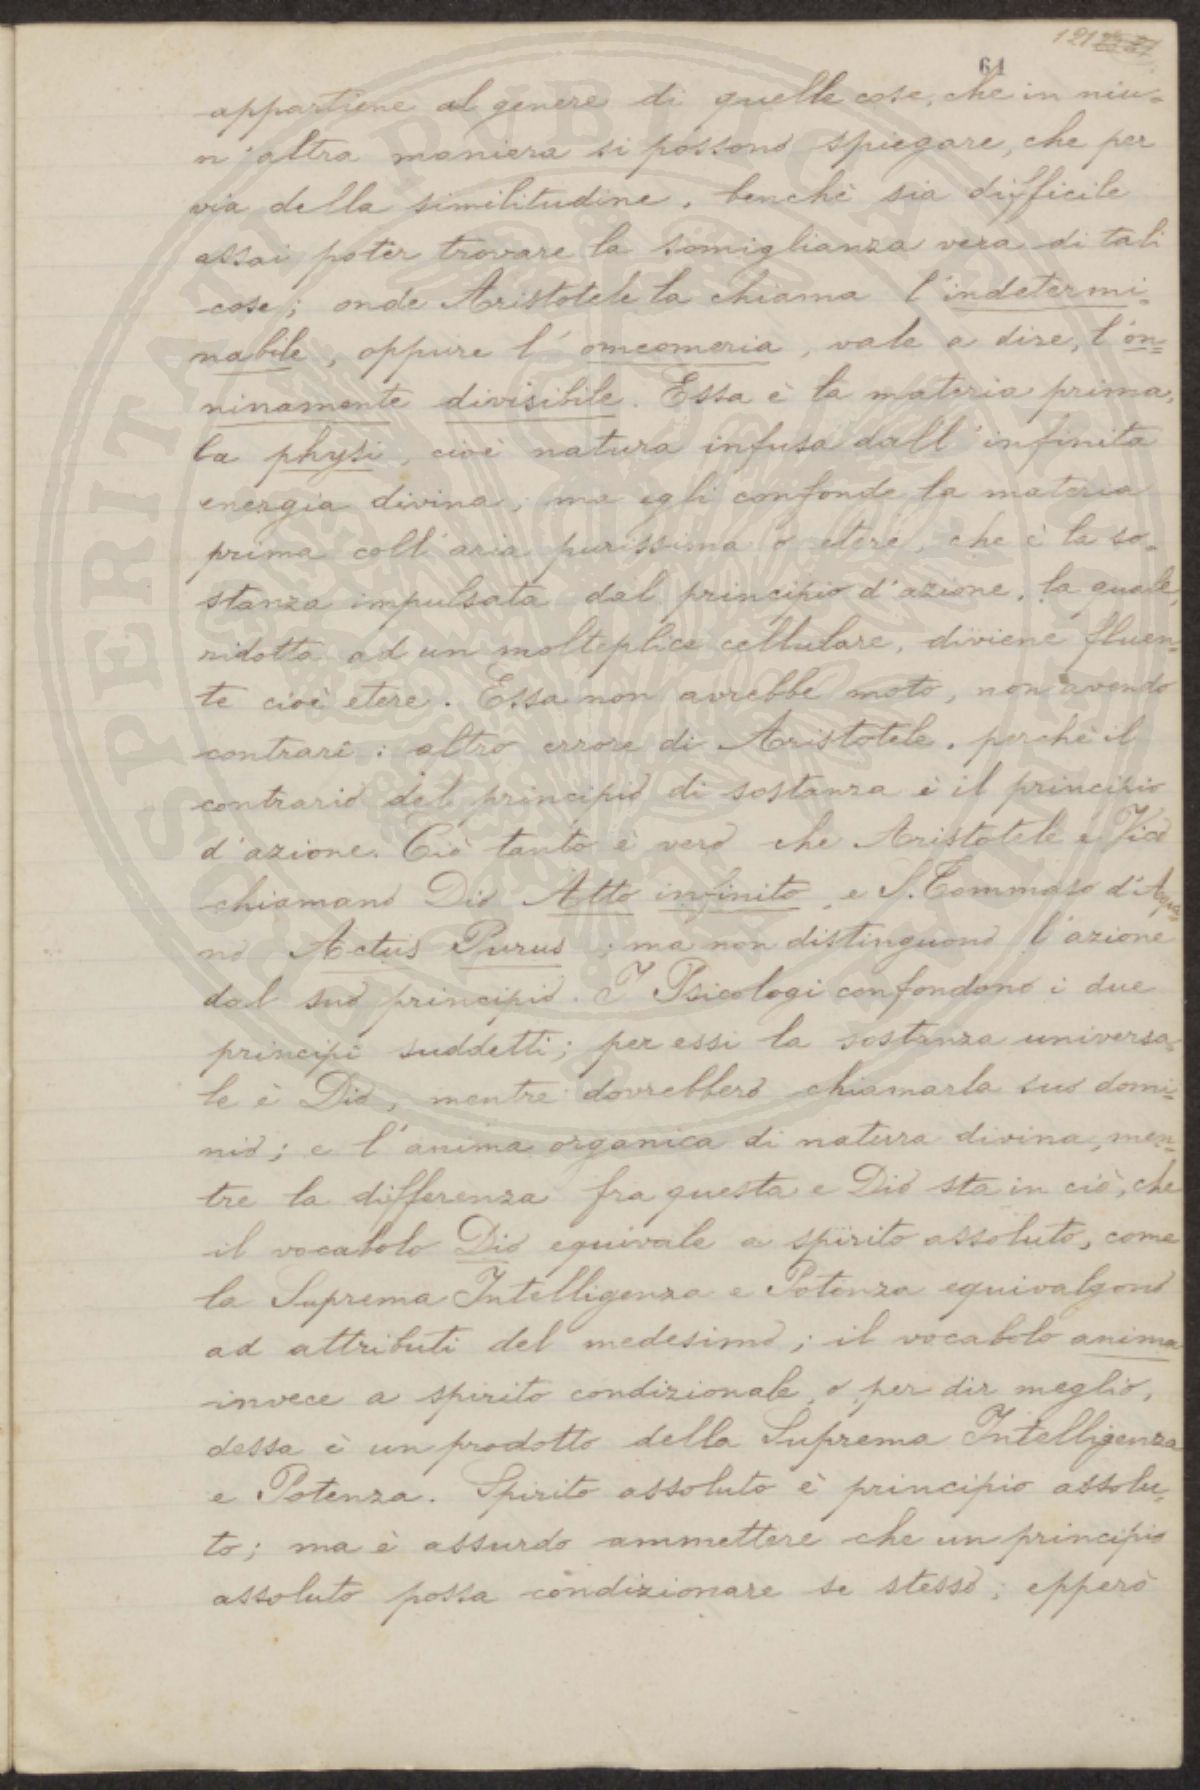 121
61
appartiene al genere di quelle cose, che in niu-
n'altra maniera si possono spiegare, che per
via della similitudine, benchè sia difficile
assai poter trovare la somiglianza vera di tali
cose; onde Aristotele la chiama l'indetermi-
nabile, oppure l'omeomeria, vale a dire, l'on-
ninamente divisibile. Essa è la materia prima,
la physi, cioè natura infusa dall'infinita
energia divina; ma egli confonde la materia
prima coll'aria purissima o etere, che è la so-
stanza impulsata dal principio d'azione, la quale,
ridotta ad un molteplice cellulare, diviene fluen-
te cioè etere. Essa non avrebbe moto, non avendo
contrari: altro errore di Aristotele, perchè il
contrario del principio di sostanza è il principio
d'azione. Ciò tanto è vero che Aristotele e Vico
chiamano Dio Atto infinito, e S. Tommaso d'Aqui-
no Actus Purus; ma non distinguono l'azione
dal suo principio. I Psicologi confondono i due
principî suddetti; per essi la sostanza universa-
le è Dio, mentre dovrebbero chiamarla suo domi-
nio; e l'anima organica di natura divina, men-
tre la differenza fra questa e Dio sta in ciò, che
il vocabolo Dio equivale a spirito assoluto, come
la Suprema Intelligenza e Potenza equivalgono
ad attributi del medesimo; il vocabolo anima
invece a spirito condizionale, o, per dir meglio,
dessa è un prodotto della Suprema Intelligenza
e Potenza. Spirito assoluto è principio assolu-
to; ma è assurdo ammettere che un principio
assoluto possa condizionare se stesso; epperò